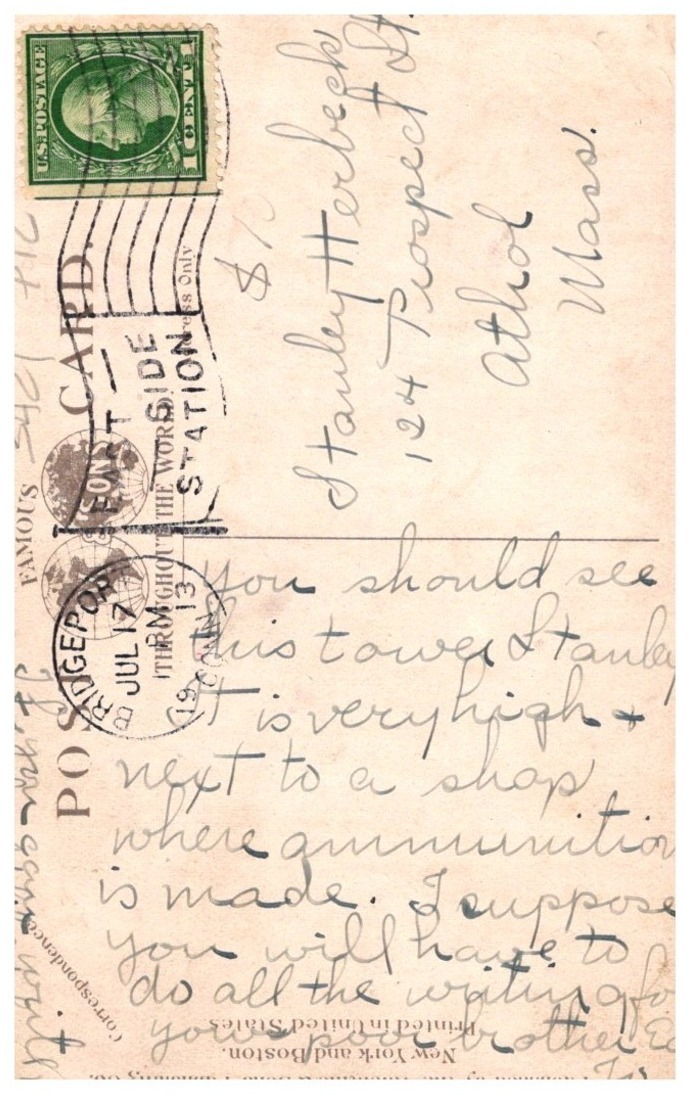 U.S. POSTAGE
1 CENT 1
POST CARD.
FAMOUS
THROUGHOUT THE WORLD
Address Only
BRIDGEPOR
CONN
JUL 17
PM
1913
EAST
SIDE
STATION
Stanley Herbeck
124 Prospect St.
Athol
Mass.
You should see
this tower Stanley
It is very high +
next to a shop
where ammunition
is made. I suppose
you will have to
do all the writing fo
your poor brother Ed
Correspondence
New York and Boston.
Printed in United States